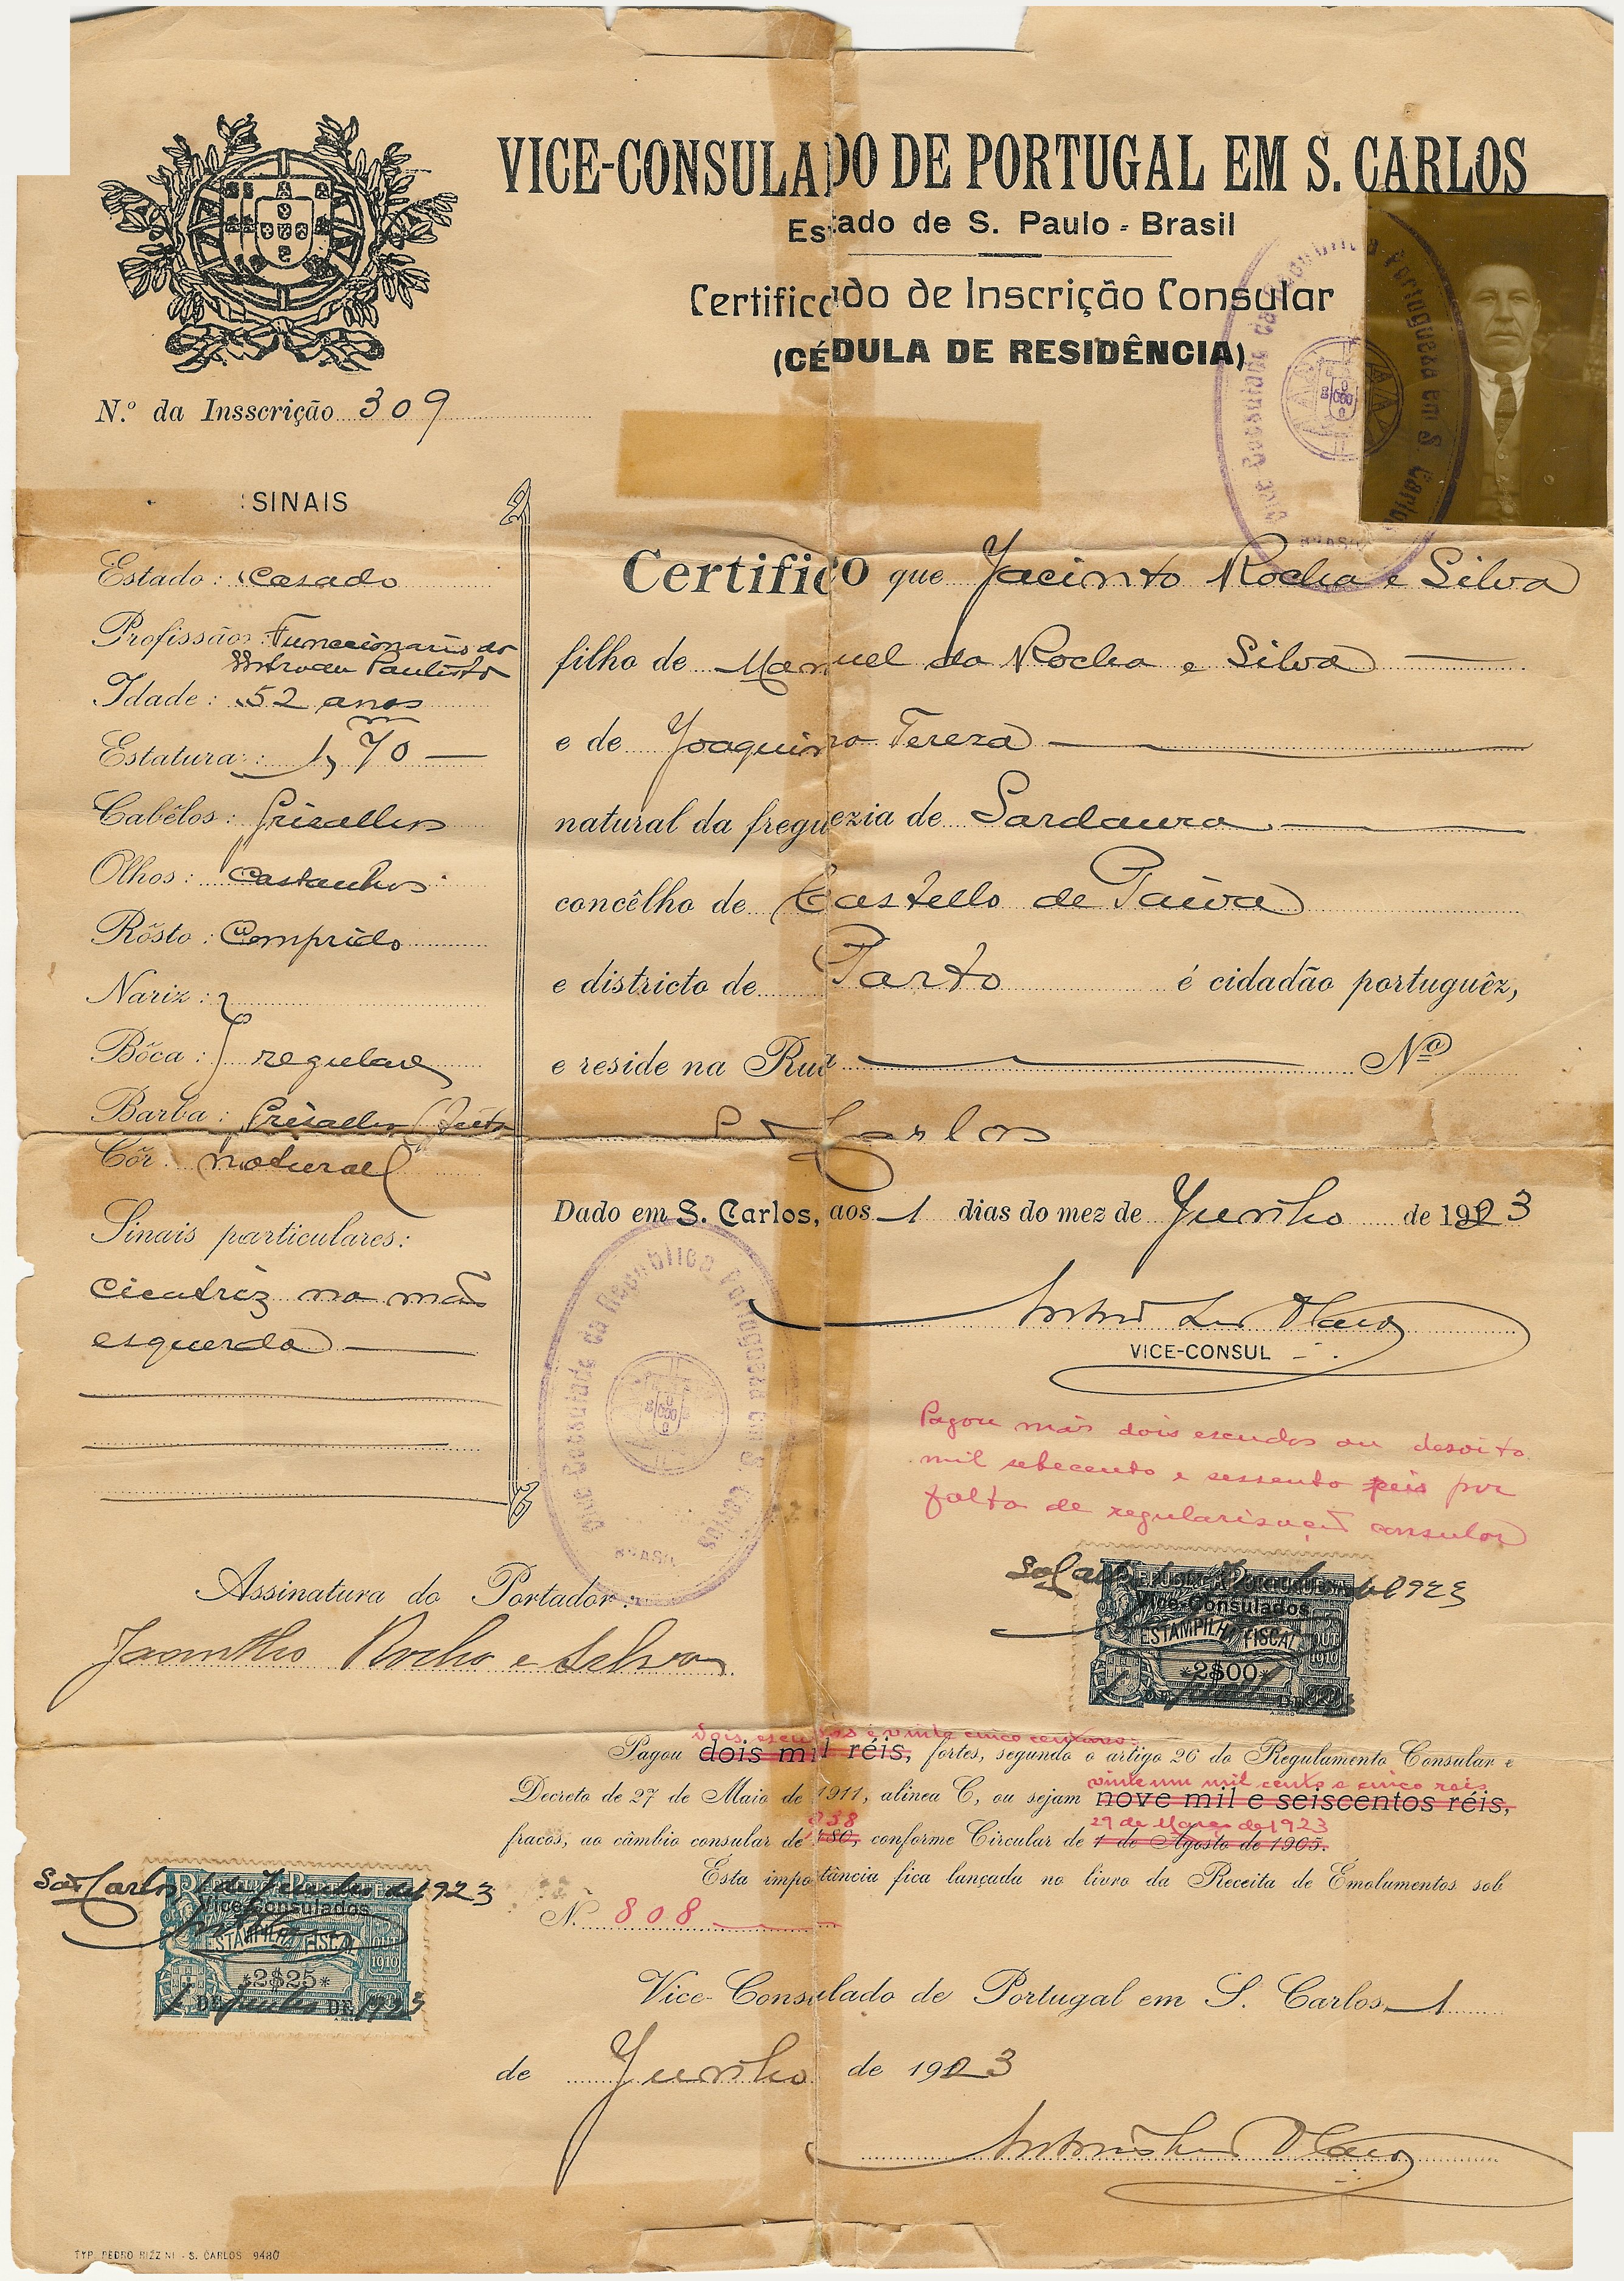 VICE-CONSULADO DE PORTUGAL EM S. CARLOS
Estado de S. Paulo - Brasil
Certificado de Inscrição Consular
(CÉDULA DE RESIDÊNCIA)
Vice Consulado da Republica Portuguesa em S. Carlos
BRASIL
N.º da Insscrição 309
SINAIS
Estado: casado
Profissão: Funccionario da
Paulista
Idade: 52 anos
Estatura: 1,70
m
Cabêlos: Grisalhos
Olhos: castanhos
Rôsto: Comprido
Nariz:
Bôca: regulares
Barba: Grisalha
Côr: natural
Sinais particulares:
cicatriz na mão
esquerda
Certifico que Jacinto Rocha e Silva
filho de Manuel da Rocha e Silva
e de Joaquina Tereza
natural da freguezia de Sardoura
concêlho de Castello de Paiva
e districto de Porto é cidadão portuguêz,
e reside na Rua Nº
S. Carlos
Dado em S. Carlos, aos 1 dias do mez de Junho de 1923
VICE-CONSUL
Vice Consulado da Republica Portuguesa em S. Carlos
BRASIL
Pagou mais dois escudos ou desoito
mil setecento e sessenta reis por
falta de regularisação consular
Assinatura do Portador:
Jacintho Rocha e Silva
S. Carlos 1 de Junho de 1923
REPUBLICA PORTUGUESA
Vice-Consulados
ESTAMPILHA FISCAL
OUT
1910
*2$00*
DE DE
dois escudos e vinte cinco centavos
Pagou dois mil réis, fortes, segundo o artigo 26 do Regulamento Consular e
vinte um mil cento e cinco reis
Decreto de 27 de Maio de 1911, alinea C, ou sejam nove mil e seiscentos réis,
938 29 de Março de 1923
fracos, ao câmbio consular de 480, conforme Circular de 1 de Agosto de 1905.
Esta importância fica lançada no livro da Receita de Emolumentos sob
N. 808
São Carlos 1 de Junho de 1923
REPUBLICA PORTUGUESA
Vice-Consulados
ESTAMPILHA FISCAL
OUT
1910
*2$25*
1 DE Junho DE 1923
Vice-Consulado de Portugal em S. Carlos, 1
de Junho de 1923
TYP. PEDRO RIZZINI - S. CARLOS 9480